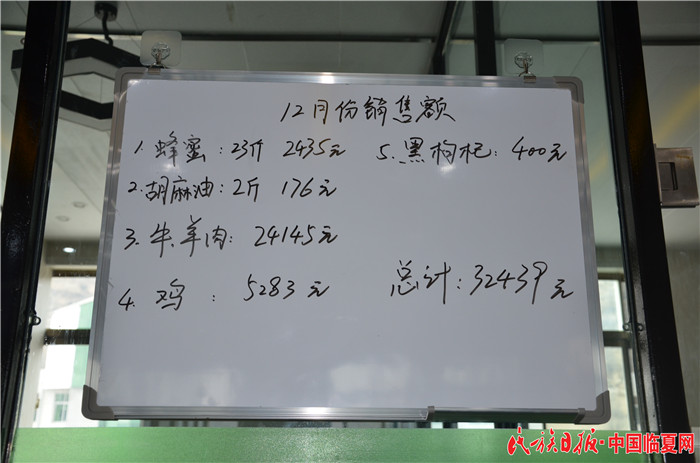 12月份销售额
1. 蜂蜜：23斤 2435元 5. 黑枸杞：400元
2. 胡麻油：2斤 176元
3. 牛.羊肉：24145元
4. 鸡： 5283元 总计：32439元
民族日报·中国临夏网